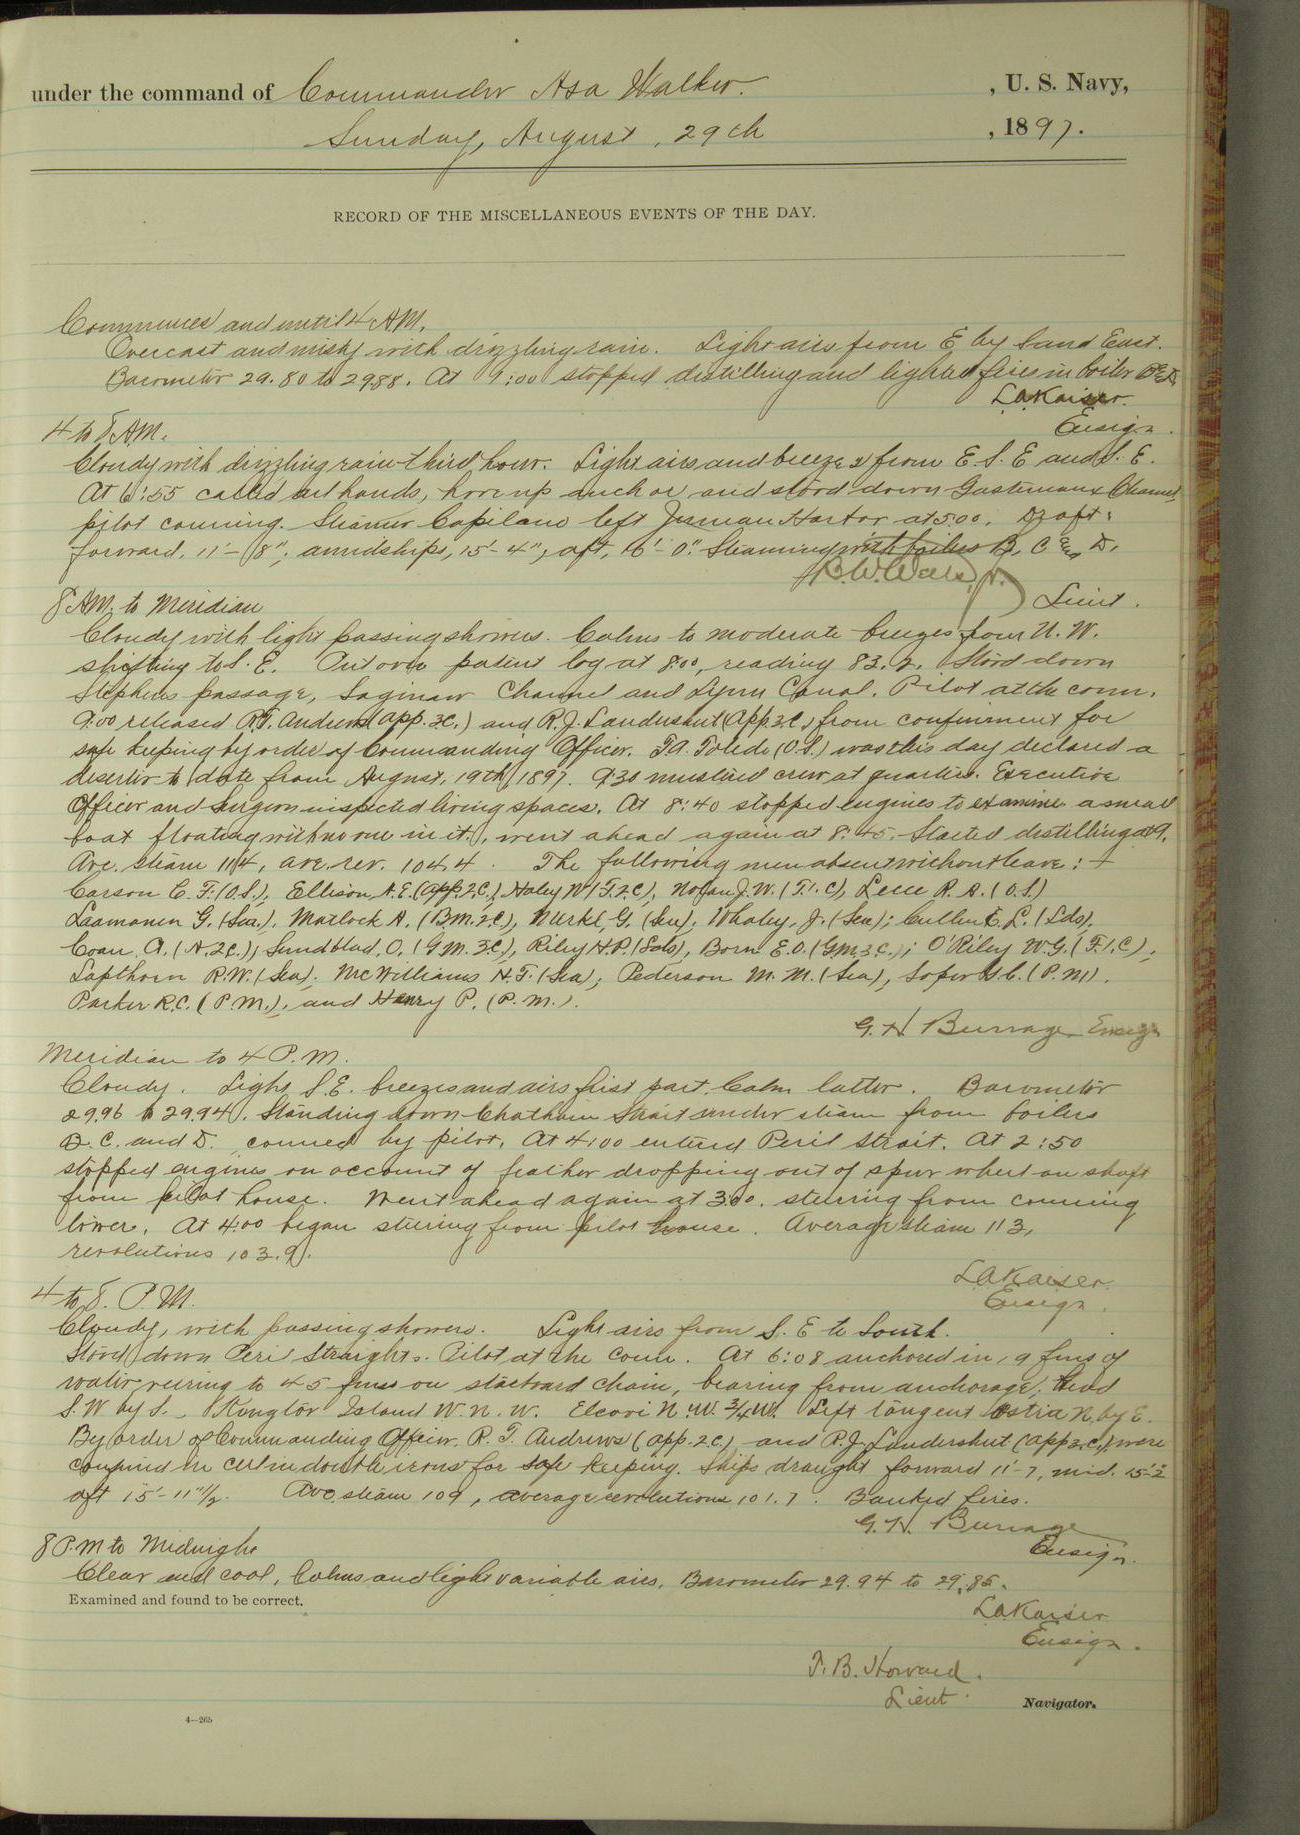 under the command of Commander Asa Walker. , U. S. Navy,
Sunday, August, 29th , 1897.
RECORD OF THE MISCELLANEOUS EVENTS OF THE DAY.
Commences and until 4 AM.
Overcast and misty with drizzling rain. Light airs from E by S and East.
Barometer 29.80 to 29.88. At 1:00 stopped distilling and lighted fires in boiler
L.A. Kaiser.
Ensign.
4 to 8 A.M.
Cloudy with drizzling rain third hour. Light airs and breezes from E. S. E and S. E.
At 6:55 called all hands, hove up anchor and stood down Gastineaux Channel,
pilot conning. Steamer Capilano left Juneau Harbor at 5.00. Draft:
forward, 11'-8"; amidships, 15'-4"; aft, 16'-0". Steaming with boilers B, C and D.
B. W. Wells, Jr.
Lieut.
8 AM. to Meridian
Cloudy with light passing showers. Calms to moderate breezes from N. W.
shifting to S. E. Put over patent log at 8.00, reading 83.2. Stood down
Stephens passage, Saginaw Channel and Lynn Canal. Pilot at the conn.
9.00 released R.T. Andrews (App. 2C.) and R.J. Landershut (App. 2.C.) from confinement for
safe keeping by order of Commanding Officer. T.A. Toledo (O.S.) was this day declared a
deserter to date from August, 19th, 1897. 9:30 mustered crew at quarters. Executive
Officer and Surgeon inspected living spaces. At 8:40 stopped engines to examine a small
boat floating with no one in it, went ahead again at 8:45. Started distilling at 9.
Ave. steam 114, ave. rev. 104.4. The following men absent without leave:
Carson C. F. (O.S.), Ellison A. E. (App. 2.C.), Haley W (F.2C), Nolan J. W. (F.1.C), Leue R. A. (O.S)
Laamanen G. (Sea), Matlock A. (B.M.2C), Merkl, G. (Sea), Whaley, J. (Sea); Cullen E. L. (Lds),
Coan, A. (A.2C); Sundblad, O. (G.M. 3C), Riley H.P. (Lds), Born E.O. (G.M.3.C.); O'Riley W.G. (F.1.C);
Lapthorn R.W. (Sea). McWilliams H. F. (Sea); Pederson M. M. (Sea), Soper (P.M).
Parker R.C. (P.M.), and Henry P. (P.M.).
G. H Burrage Ensign
Meridian to 4 P.M.
Cloudy. Light S.E. breezes and airs first part. Calm latter. Barometer
29.96 to 29.94. Standing down Chatham Strait under steam from boilers
B. C. and D. conned by pilot. At 4:00 entered Peril Strait. At 2:50
stopped engines on account of feather dropping out of spur wheel on shaft
from pilot house. Went ahead again at 3.00. steering from conning
tower. At 4.00 began steering from pilot house. Average steam 113,
revolutions 103.9.
L.A. Kaiser
Ensign.
4 to 8. P.M.
Cloudy, with passing showers. Light airs from S. E to South.
Stood down Peril Straights. Pilot at the conn. At 6:08 anchored in 19 fms of
water veering to 45 fms on starboard chain, bearing from anchorage; Head
S. W by S. Island W. N. W. N. W. 3/4 W. Left tangent N. by E.
By order of Commanding Officer. R. T. Andrews (App. 2.C) and R.J. Landershut (App 2.C.) were
confined in cell in double irons for safe keeping. Ships draught forward 11'-7, mid. 15'-2
aft 15'-11"1/2. Ave. steam 109, average revolutions 101.7. Banked fires.
G. H. Burrage
Ensign.
8 P.M to Midnight
Clear and cool, Calms and light variable airs. Barometer 29.94 to 29.85.
Examined and found to be correct.
L.A. Kaiser
Ensign.
T. B. Howard.
Lieut. Navigator.
4—265